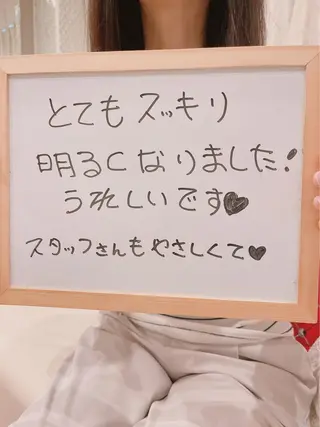 とてもスッキリ
明るくなりました!
うれしいです♥
スタッフさんもやさしくて♥